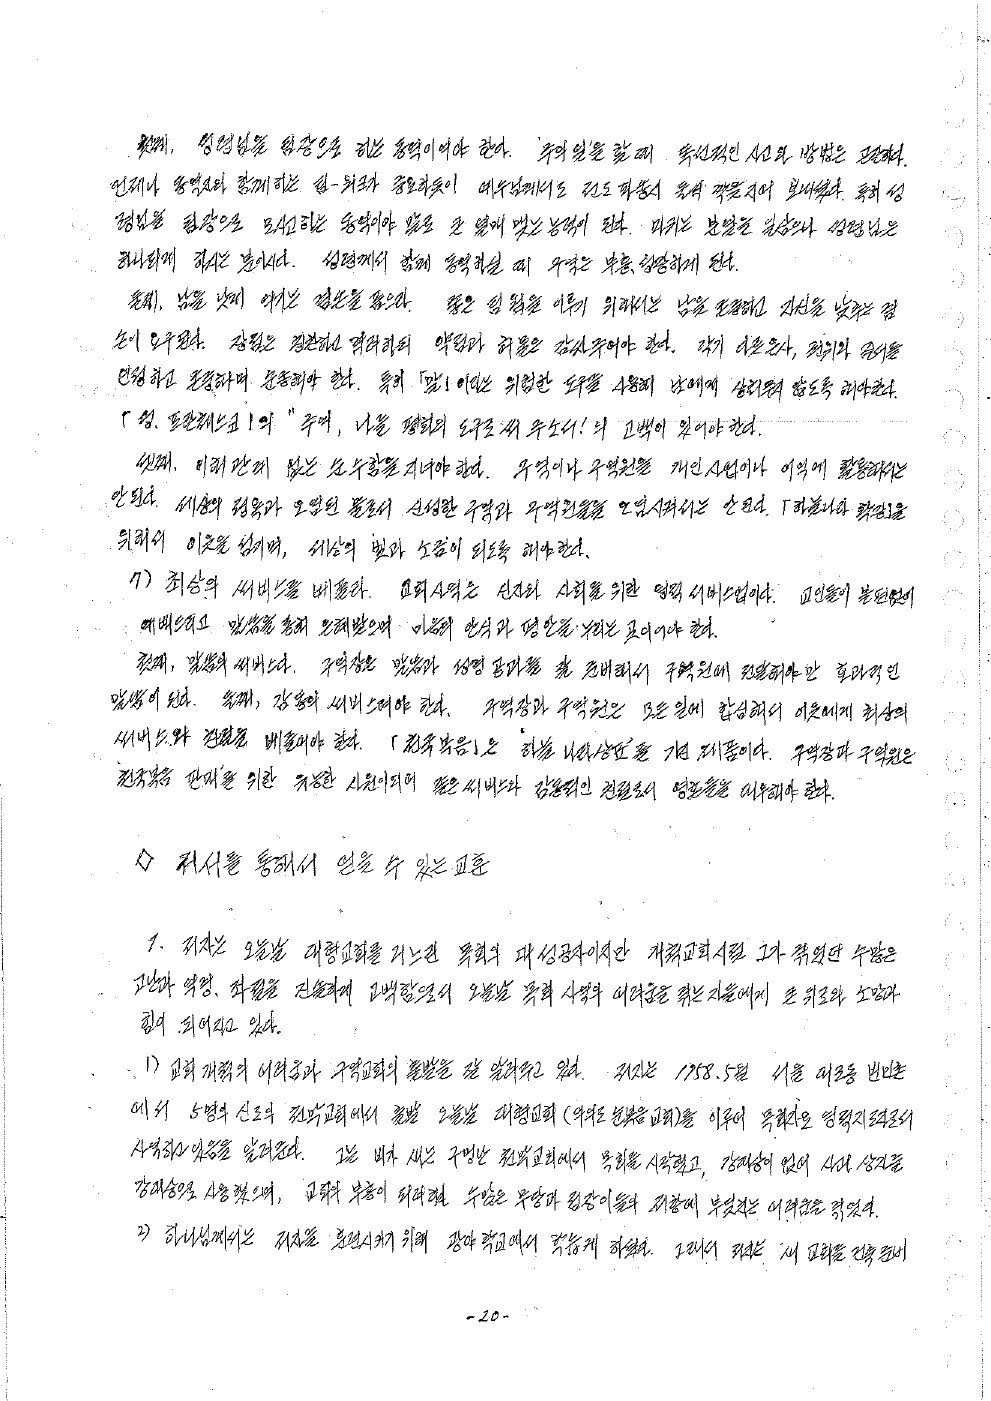 첫째, 성령님을 팀장으로 하는 동역이어야 한다. 주의 일을 할 때 독선적인 사고와 방법은 곤란하다.
언제나 동역자와 함께하는 팀-워크가 중요하듯이 예수님께서도 전도 파송시 둘씩 짝을 지어 보내셨다. 특히 성
령님을 팀장으로 모시고 하는 동역이야 말로 큰 열매 맺는 능력이 된다. 마귀는 분열을 일삼으나 성령님은
하나되게 하시는 분이시다. 성령께서 함께 동역하실 때 구역은 부흥, 성장하게 된다.
둘째, 남을 낫게 여기는 겸손을 품으라. 좋은 팀웍을 이루기 위해서는 남을 존중하고 자신을 낮추는 겸
손이 요구된다. 장점은 칭찬하고 격려하되 약점과 허물은 감싸주어야 한다. 각기 다른 은사, 직위와 은사를
인정하고 존중하며 운동해야 한다. 특히 「말」이라는 위험한 도구를 사용해 남에게 상처주지 않도록 해야한다.
「성. 프란체스코」의 "주여, 나를 평화의 도구로 써 주소서!"의 고백이 있어야 한다.
셋째. 이해관계 없는 순수함을 지녀야 한다. 구역이나 구역원을 개인사업이나 이익에 활용해서는
안 된다. 세상의 정욕과 오염된 물로서 신성한 구역과 구역원들을 오염시켜서는 안 된다. 「하늘나라 확장」을
위해서 이웃을 섬기며, 세상의 빛과 소금이 되도록 해야한다.
7) 최상의 써비스를 베풀라. 교회사역은 신자와 사회를 위한 영적 서비스업이다. 교인들이 불편없이
예배드리고 말씀을 통해 은혜받으며 마음의 안식과 평안을 누리는 곳이어야 한다.
첫째, 말씀의 써비스다. 구역장은 말씀과 성경 공과를 잘 준비해서 구역원에 전달해야만 효과적인
말씀이 된다. 둘째, 감동의 써비스여야 한다. 구역장과 구역원은 모든 일에 합심해서 이웃에게 최상의
써비스와 친절을 베풀어야 한다. 「천국복음」은 '하늘 나라상표'를 가진 제품이다. 구역장과 구역원은
'천국복음 판매'를 위한 유능한 사원이 되어 좋은 써비스와 감동적인 친절로서 영혼들을 대우해야 한다.
◇ 저서를 통해서 얻을 수 있는 교훈
1. 저자는 오늘날 대형교회를 거느린 목회의 대 성공자이지만 개척교회시절 그가 겪었던 수많은
고난과 역경, 좌절을 진솔하게 고백함으로서 오늘날 목회 사역의 어려움을 겪는 자들에게 큰 위로와 소망과
힘이 되어지고 있다.
1) 교회 개척의 어려움과 구역교회의 출발을 잘 알려주고 있다. 저자는 1958. 5월 서울 대조동 빈민촌
에서 5명의 신도의 천막교회에서 출발 오늘날 대형교회(여의도 순복음교회)를 이루어 목회자요 영적지도자로서
사역하고 있음을 알려준다. 그는 비가 새는 구멍난 천막교회에서 목회를 시작했고, 강대상이 없어 사과 상자를
강대상으로 사용했으며, 교회가 부흥이 되려하면 수많은 무당과 점장이들의 저항에 부딪치는 어려움을 겪었다.
2) 하나님께서는 저자를 훈련시키기 위해 광야 학교에서 학습케 하셨다. 그래서 저자는 새 교회를 건축 준비
-20-